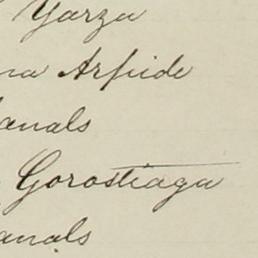 Yarza
na Arpide
anals
Gorostiaga
anals